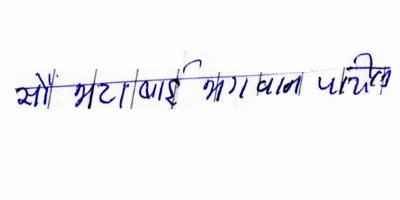 सौ भटाबाई भगवान पाटील